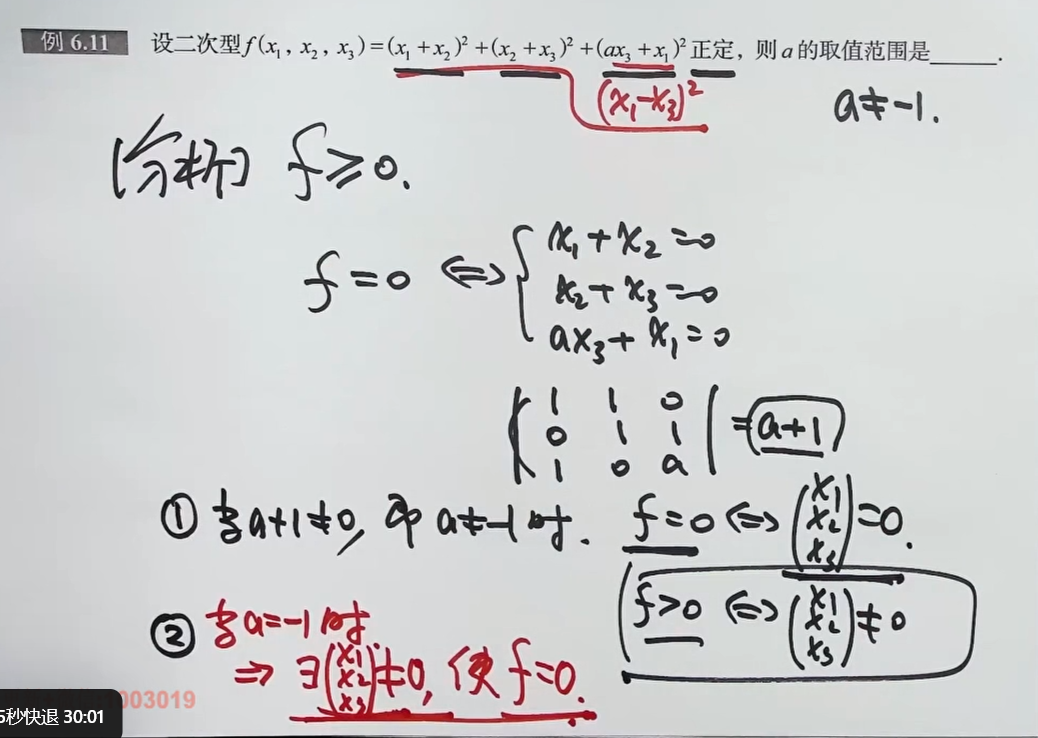 例 6.11 设二次型f(x₁, x₂, x₃)=(x₁+x₂)²+(x₂+x₃)²+(ax₃+x₁)²正定，则a的取值范围是______.
(x₁-x₃)²
a≠-1.
[分析] f≥0.
f=0 ⇔ { x₁+x₂=0
x₂+x₃=0
ax₃+x₁=0
| 1 1 0
0 1 1 | = a+1
1 0 a
① 当a+1≠0, 即a≠-1时. f=0 ⇔ (x₁ x₂ x₃)=0.
f>0 ⇔ (x₁ x₂ x₃)≠0
② 当a=-1时
⇒ ∃(x₁ x₂ x₃)≠0, 使f=0.
003019
5秒快退 30:01